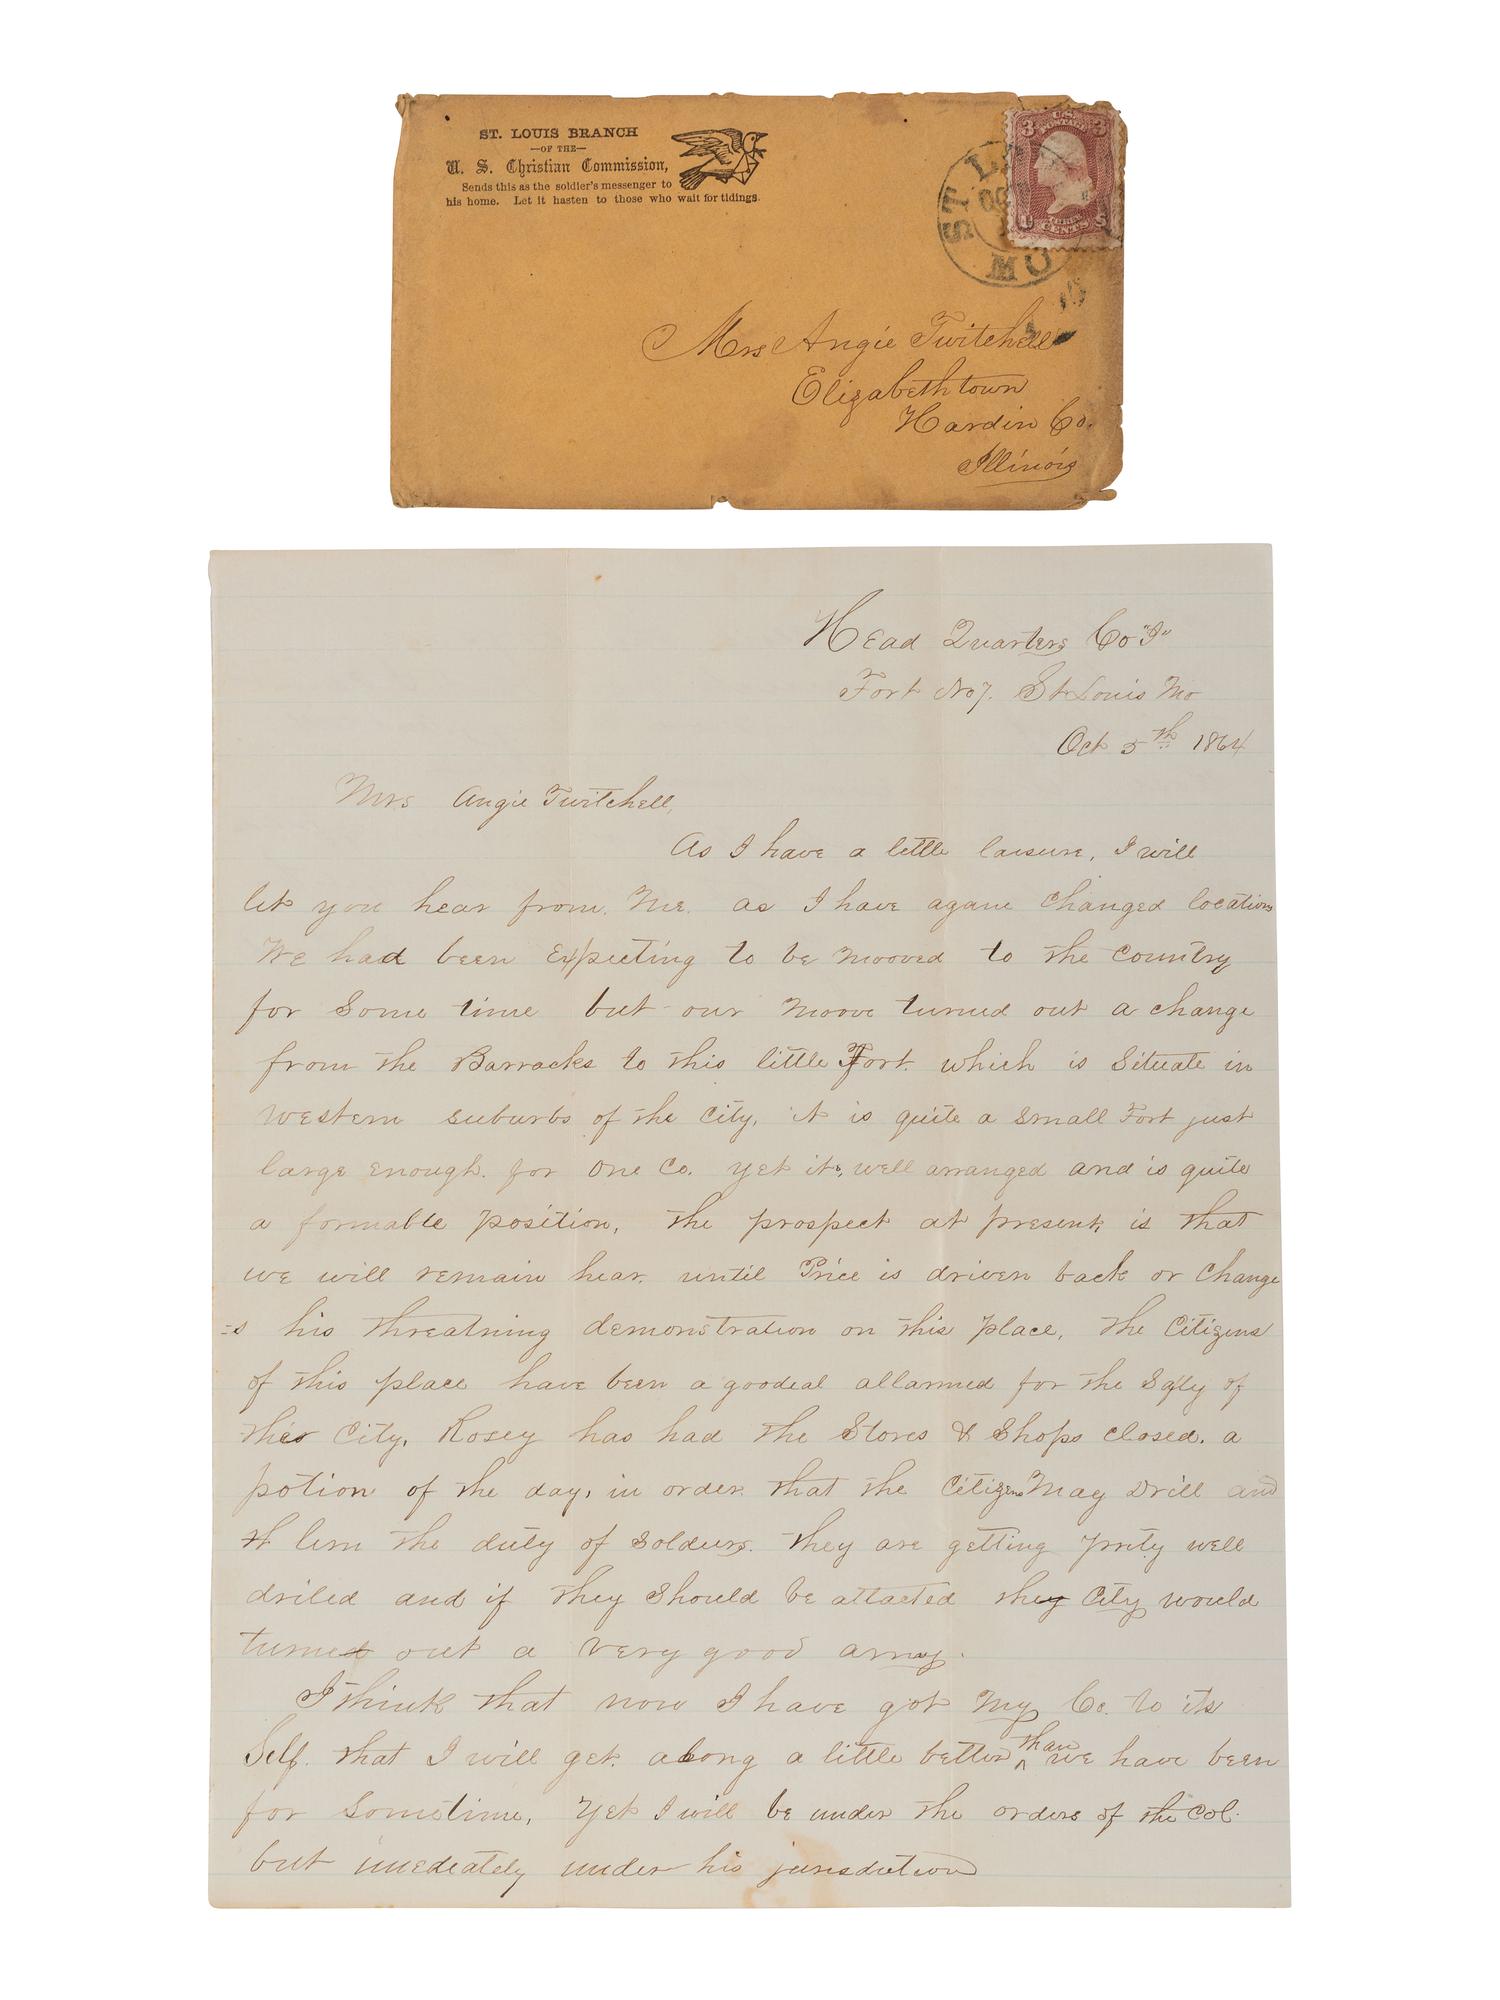 ST. LOUIS BRANCH
—OF THE—
U. S. Christian Commission,
Sends this as the soldier's messenger to
his home. Let it hasten to those who wait for tidings.
3 U.S. POSTAGE 3
THREE CENTS
ST. L
OC
MO
Mrs Angie Twitchell
Elizabethtown
Hardin Co.
Illinois
Head Quarters Co "I"
Fort No 7. St Louis Mo
Oct 5th 1864
Mrs Angie Twitchell,
As I have a little laisure, I will
let you hear from. Me. as I have agane changed locations
We had been Expecting to be mooved to the country
for Some time but our moove turned out a change
from the Barracks to this little Fort. which is Situate in
western suburbs of the City, it is quite a small Fort just
large enough. for One Co. yet its, well arranged and is quite
a formable position, the prospect at present, is that
we will remain hear. until Price is driven back or Change
=s his threatning demonstration on this place, the Citizens
of this place have been a goodeal allarmed for the Safty of
this City, Rosey has had the Stores & Shops closed. a
potion of the day, in order. that the Citizens May Drill and
lern the duty of Soldiers. they are getting prity well
driled and if they Should be attacted they City would
turned out a very good army.
I think that now I have got My Co. to its
Self. that I will get. along a little better than we have been
for Sometime, Yet I will be under the orders of the Col.
but imediately under his jurisdiction